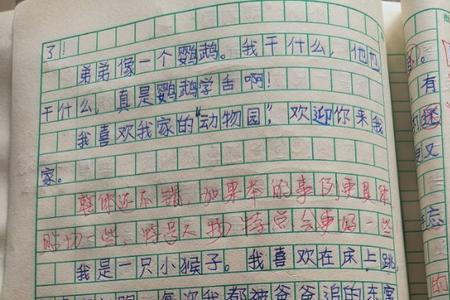 了!
弟弟像一个鹦鹉。我干什么,他也
干什么,真是鹦鹉学舌啊!
我喜欢我家的“动物园”,欢迎你来我
家。
整体还不错,如果举的事例更具体
一些,特别人物特点会更好一些
我是一只小猴子。我喜欢在床上跳
每次我都被爸爸追的
有
迷
又
的